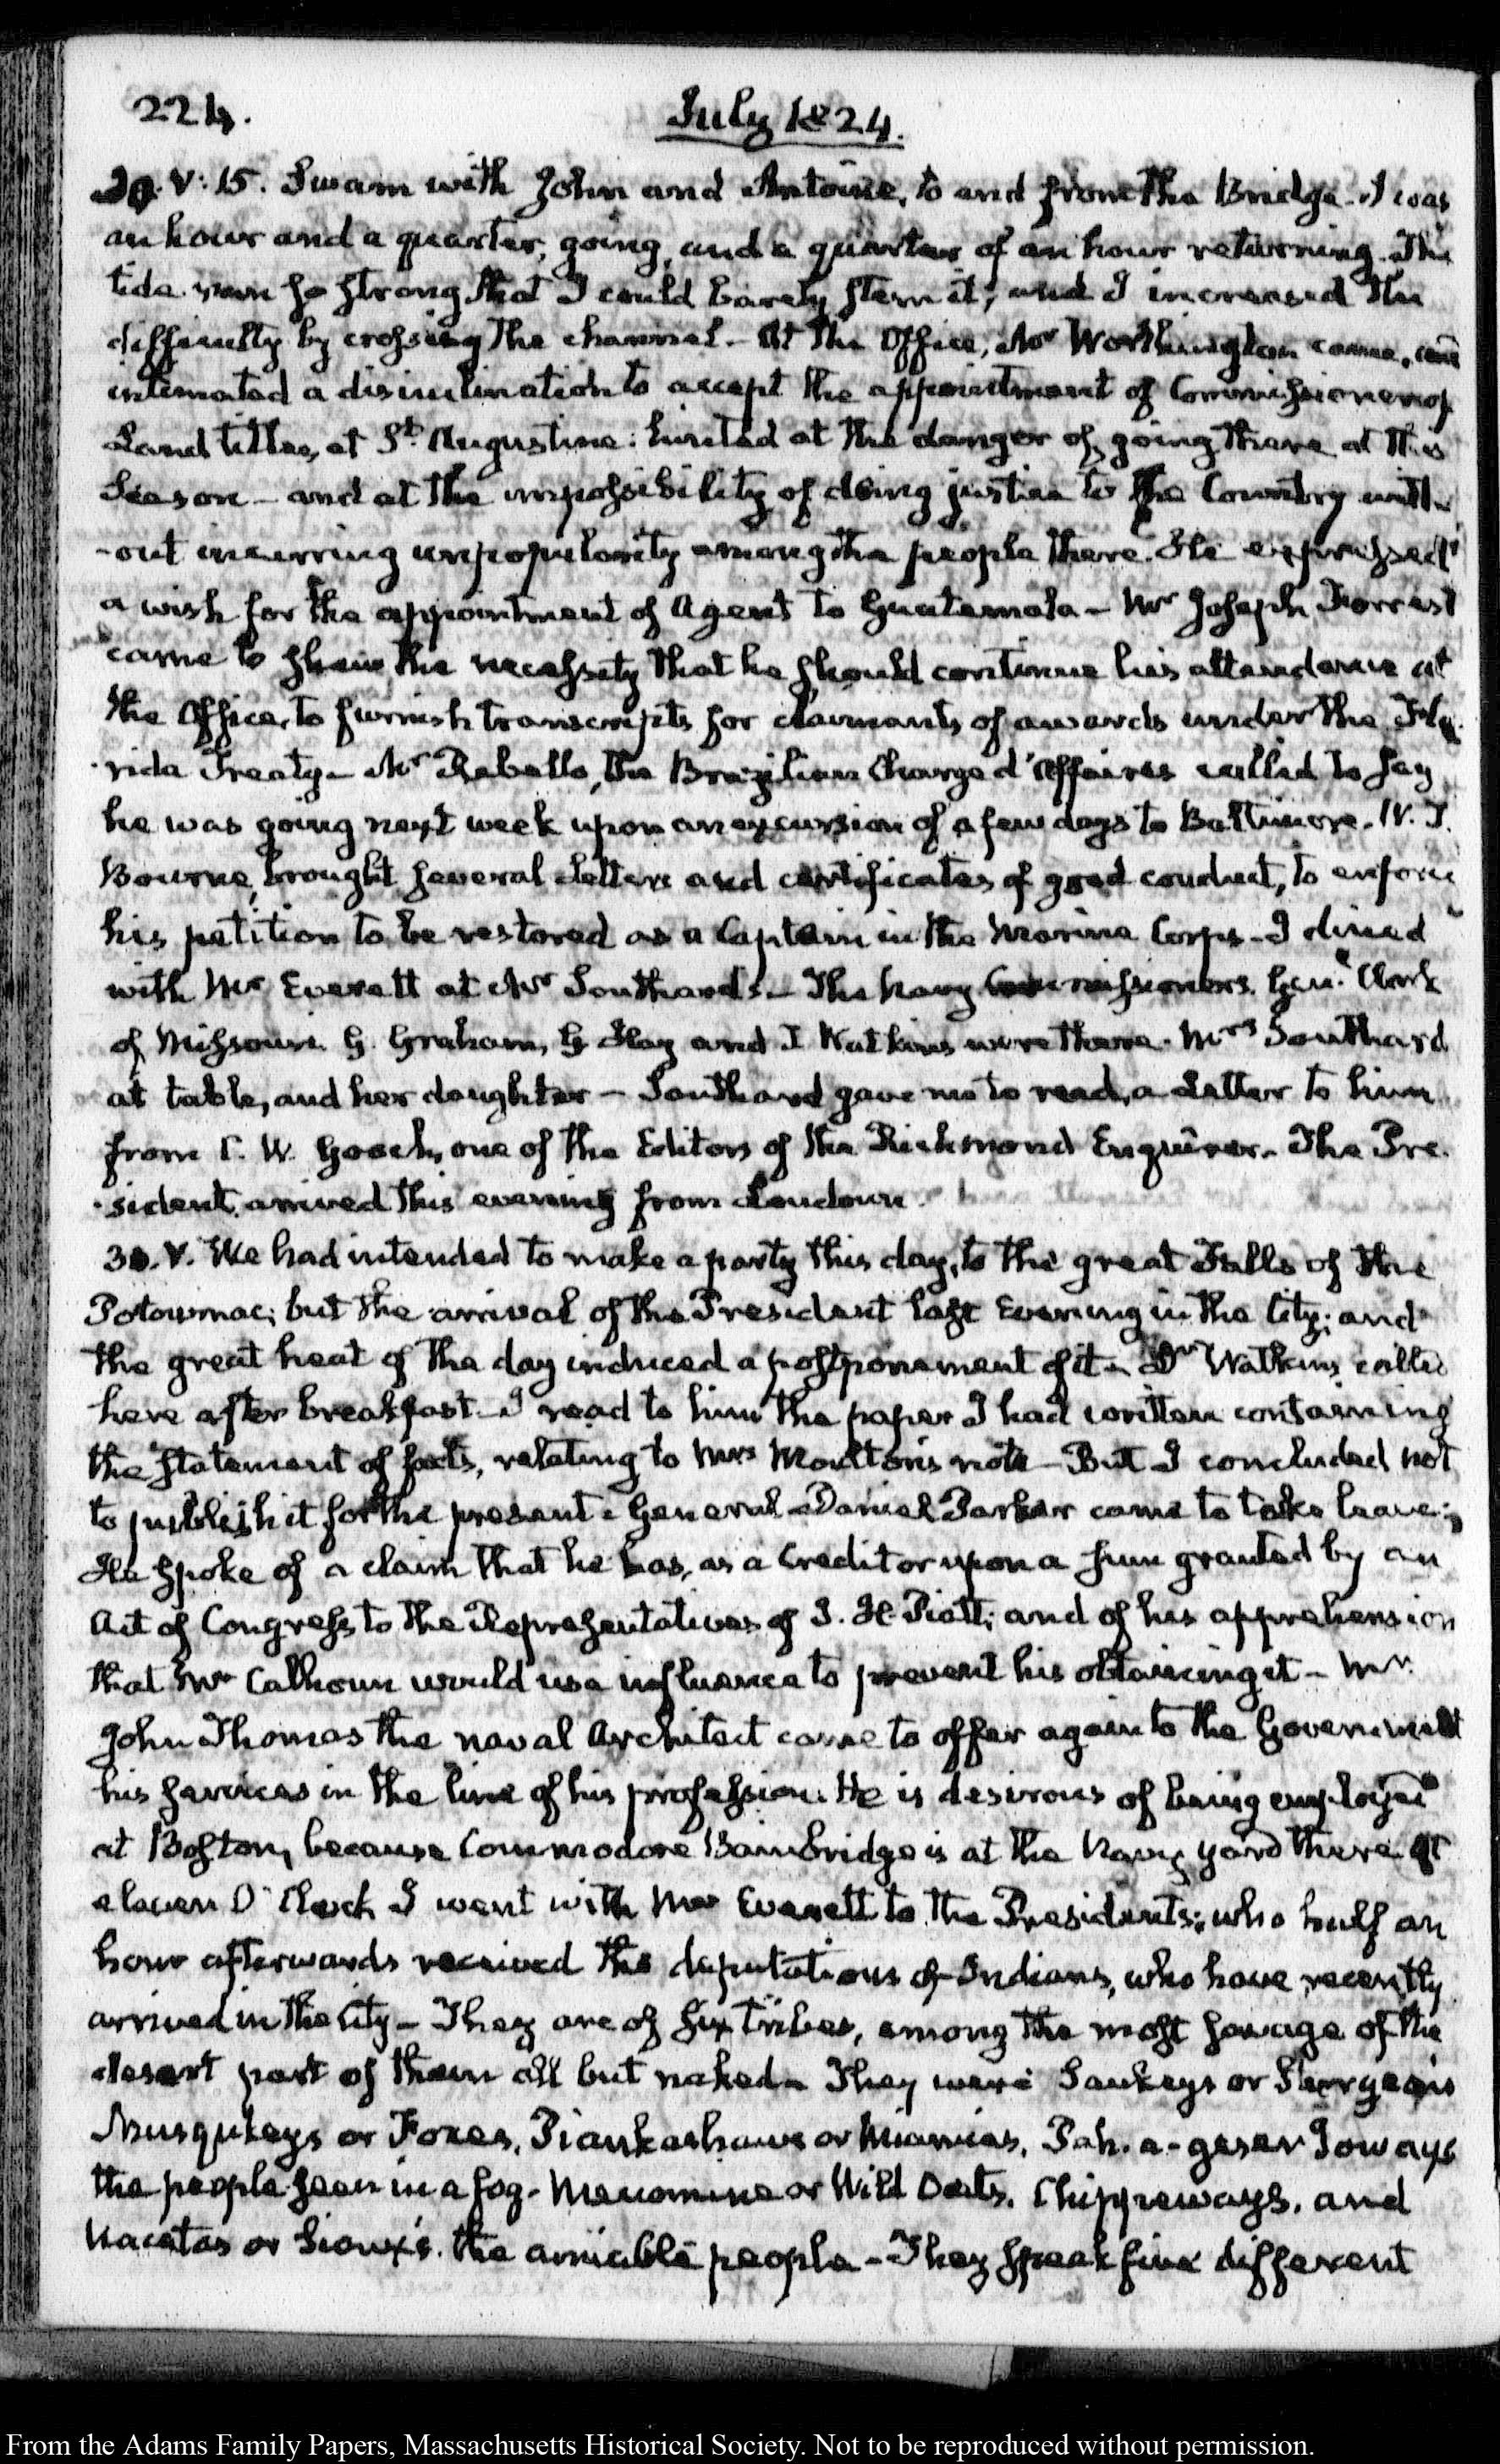 224.
July 1824.
29. V: 15. Swam with John and Antoine, to and from the Bridge. I was
an hour and a quarter, going, and a quarter of an hour returning. The
tide was so strong that I could barely stem it; and I increased the
difficulty by crossing the channel. At the Office, Mr Worthington came, and
intimated a disinclination to accept the appointment of Commissioner of
Land titles, at St. Augustine: hinted at the danger of going there at this
Season — and at the impossibility of doing justice to the Country with-
-out incurring unpopularity among the people there. He expressed
a wish for the appointment of Agent to Guatemala — Mr Joseph Forrest
came to shew the necessity that he should continue his attendance at
the Office, to furnish transcripts for claimants of awards under the Flo-
-rida Treaty — Mr Rebello, the Brazilian Chargé d'Affaires called to say
he was going next week upon an excursion of a few days to Baltimore. W. J.
Bourne, brought several letters and certificates of good conduct, to enforce
his petition to be restored as a Captain in the Marine Corps — I dined
with Mr Everett at Mr Southard's — The Navy Commissioners, Genl. Clark
of Missouri G. Graham, G Hay and T Watkins were there. Mrs Southard
at table, and her daughter — Southard gave me to read, a Letter to him
from C. W. Gooch, one of the Editors of the Richmond Enquirer. The Pre-
-sident arrived this evening from Loudoun.
30. V. We had intended to make a party this day, to the great Falls of the
Potowmac; but the arrival of the President last Evening in the City; and
the great heat of the day induced a postponement of it — Dr Watkins called
here after breakfast — I read to him the paper I had written containing
the statement of facts, relating to Mrs Moulton's note — But I concluded not
to publish it for the present. General Daniel Parker came to take leave;
He spoke of a claim that he has, as a Creditor upon a sum granted by an
Act of Congress to the Representatives of J. H. Piatt; and of his apprehension
that Mr Calhoun would use influence to prevent his obtaining it — Mr.
John Thomas the naval Architect came to offer again to the Government
his services in the line of his profession. He is desirous of being employed
at Boston, because Commodore Bainbridge is at the Navy yard there. At
eleven O'Clock I went with Mr Everett to the President's; who half an
hour afterwards received the deputations of Indians, who have recently
arrived in the City — They are of six Tribes, among the most savage of the
desert part of them all but naked — They were Saukeys or Sturgeons
Musqukeys or Foxes, Piankashaws or Miamies, Pah-a-geser Ioways
the people seen in a fog — Menomine or Wild Oats, Chippeways, and
Nacatas or Sioux's. the amiable people — They speak five different
From the Adams Family Papers, Massachusetts Historical Society. Not to be reproduced without permission.